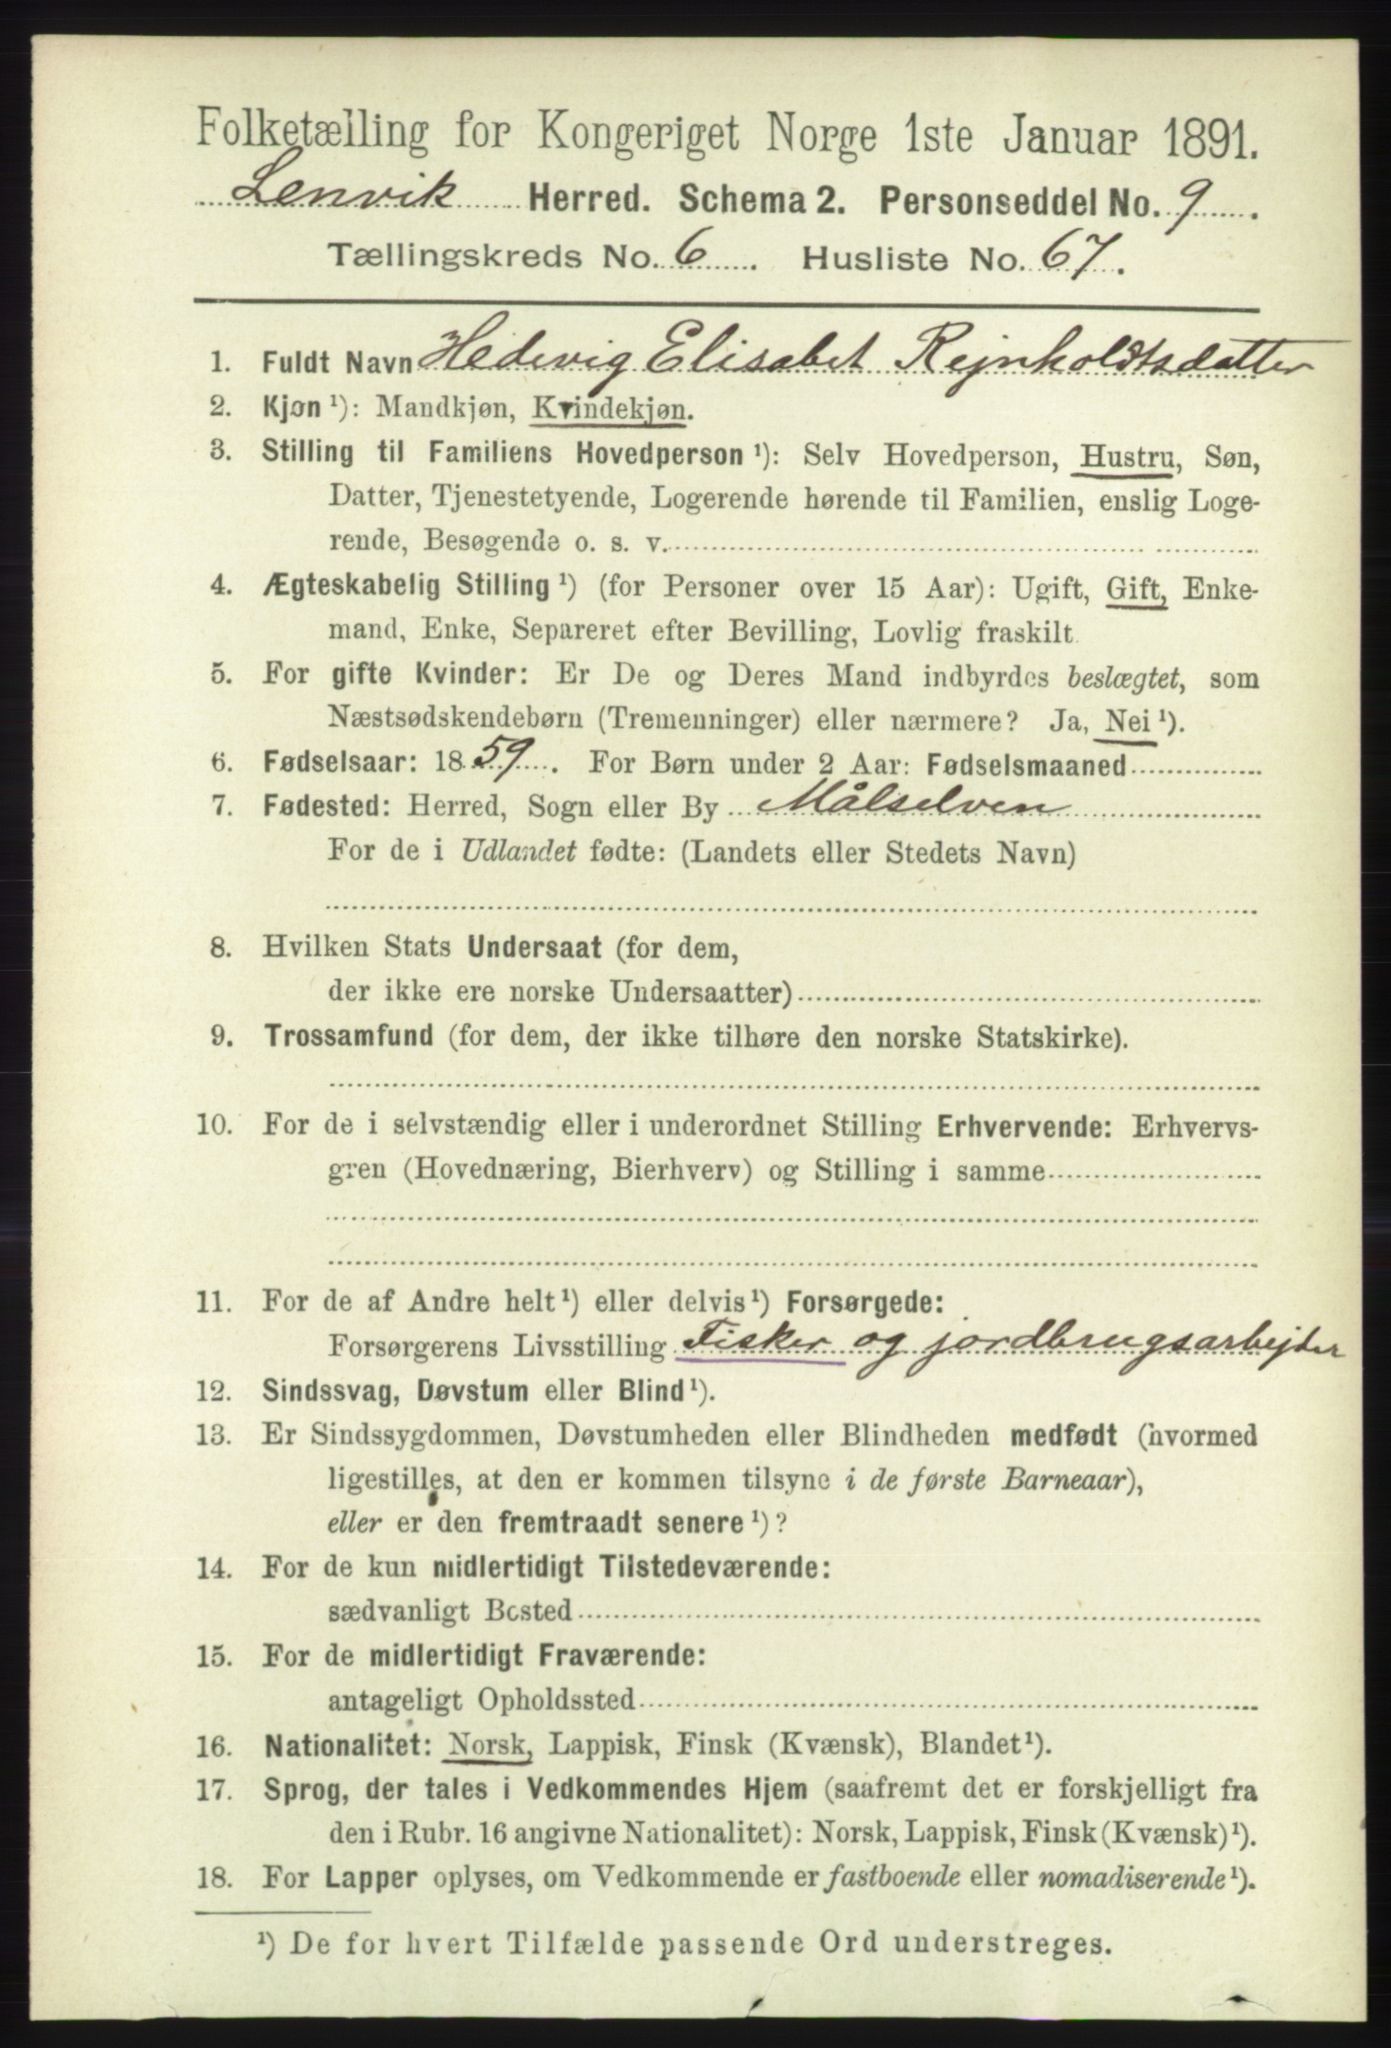 Folketælling for Kongeriget Norge 1ste Januar 1891.
Lenvik Herred. Schema 2. Personseddel No. 9.
Tællingskreds No. 6. Husliste No. 67.
1. Fuldt Navn Hedevig Elisabet Rejnholdtsdatter
2. Kjøn ¹): Mandkjøn, Kvindekjøn.
3. Stilling til Familiens Hovedperson ¹): Selv Hovedperson, Hustru, Søn,
Datter, Tjenestetyende, Logerende hørende til Familien, enslig Loge-
rende, Besøgende o. s. v.
4. Ægteskabelig Stilling ¹) (for Personer over 15 Aar): Ugift, Gift, Enke-
mand, Enke, Separeret efter Bevilling, Lovlig fraskilt
5. For gifte Kvinder: Er De og Deres Mand indbyrdes beslægtet, som
Næstsødskendebørn (Tremenninger) eller nærmere? Ja, Nei ¹).
6. Fødselsaar: 1859. For Børn under 2 Aar: Fødselsmaaned
7. Fødested: Herred, Sogn eller By Målselven
For de i Udlandet fødte: (Landets eller Stedets Navn)
8. Hvilken Stats Undersaat (for dem,
der ikke ere norske Undersaatter)
9. Trossamfund (for dem, der ikke tilhøre den norske Statskirke).
10. For de i selvstændig eller i underordnet Stilling Erhvervende: Erhvervs-
gren (Hovednæring, Bierhverv) og Stilling i samme
11. For de af Andre helt ¹) eller delvis ¹) Forsørgede:
Forsørgerens Livsstilling Fisker og jordbrugsarbejder
12. Sindssvag, Døvstum eller Blind ¹).
13. Er Sindssygdommen, Døvstumheden eller Blindheden medfødt (hvormed
ligestilles, at den er kommen tilsyne i de første Barneaar),
eller er den fremtraadt senere ¹)?
14. For de kun midlertidigt Tilstedeværende:
sædvanligt Bosted
15. For de midlertidigt Fraværende:
antageligt Opholdssted
16. Nationalitet: Norsk, Lappisk, Finsk (Kvænsk), Blandet ¹).
17. Sprog, der tales i Vedkommendes Hjem (saafremt det er forskjelligt fra
den i Rubr. 16 angivne Nationalitet): Norsk, Lappisk, Finsk (Kvænsk) ¹).
18. For Lapper oplyses, om Vedkommende er fastboende eller nomadiserende ¹).
¹) De for hvert Tilfælde passende Ord understreges.